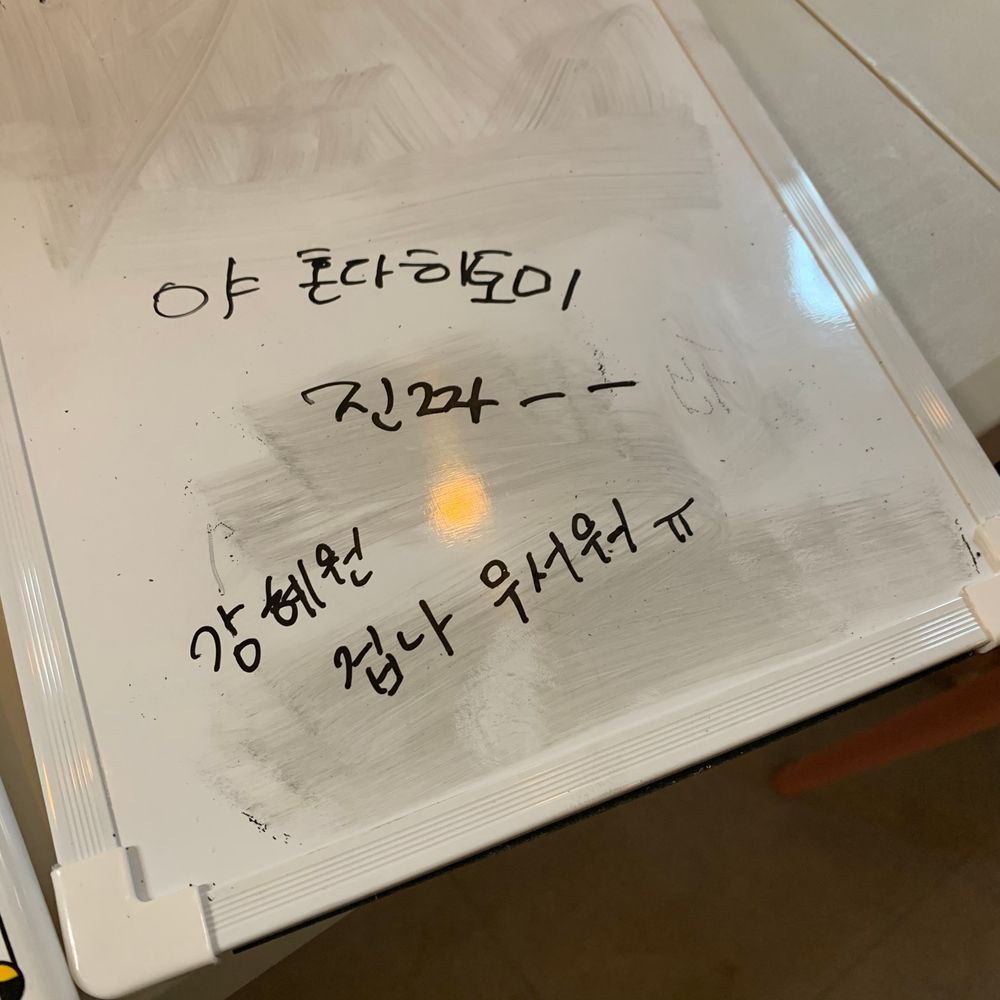 야 혼다히토미
진짜 ㅡ ㅡ
강혜원
겁나 무서워 ㅠ